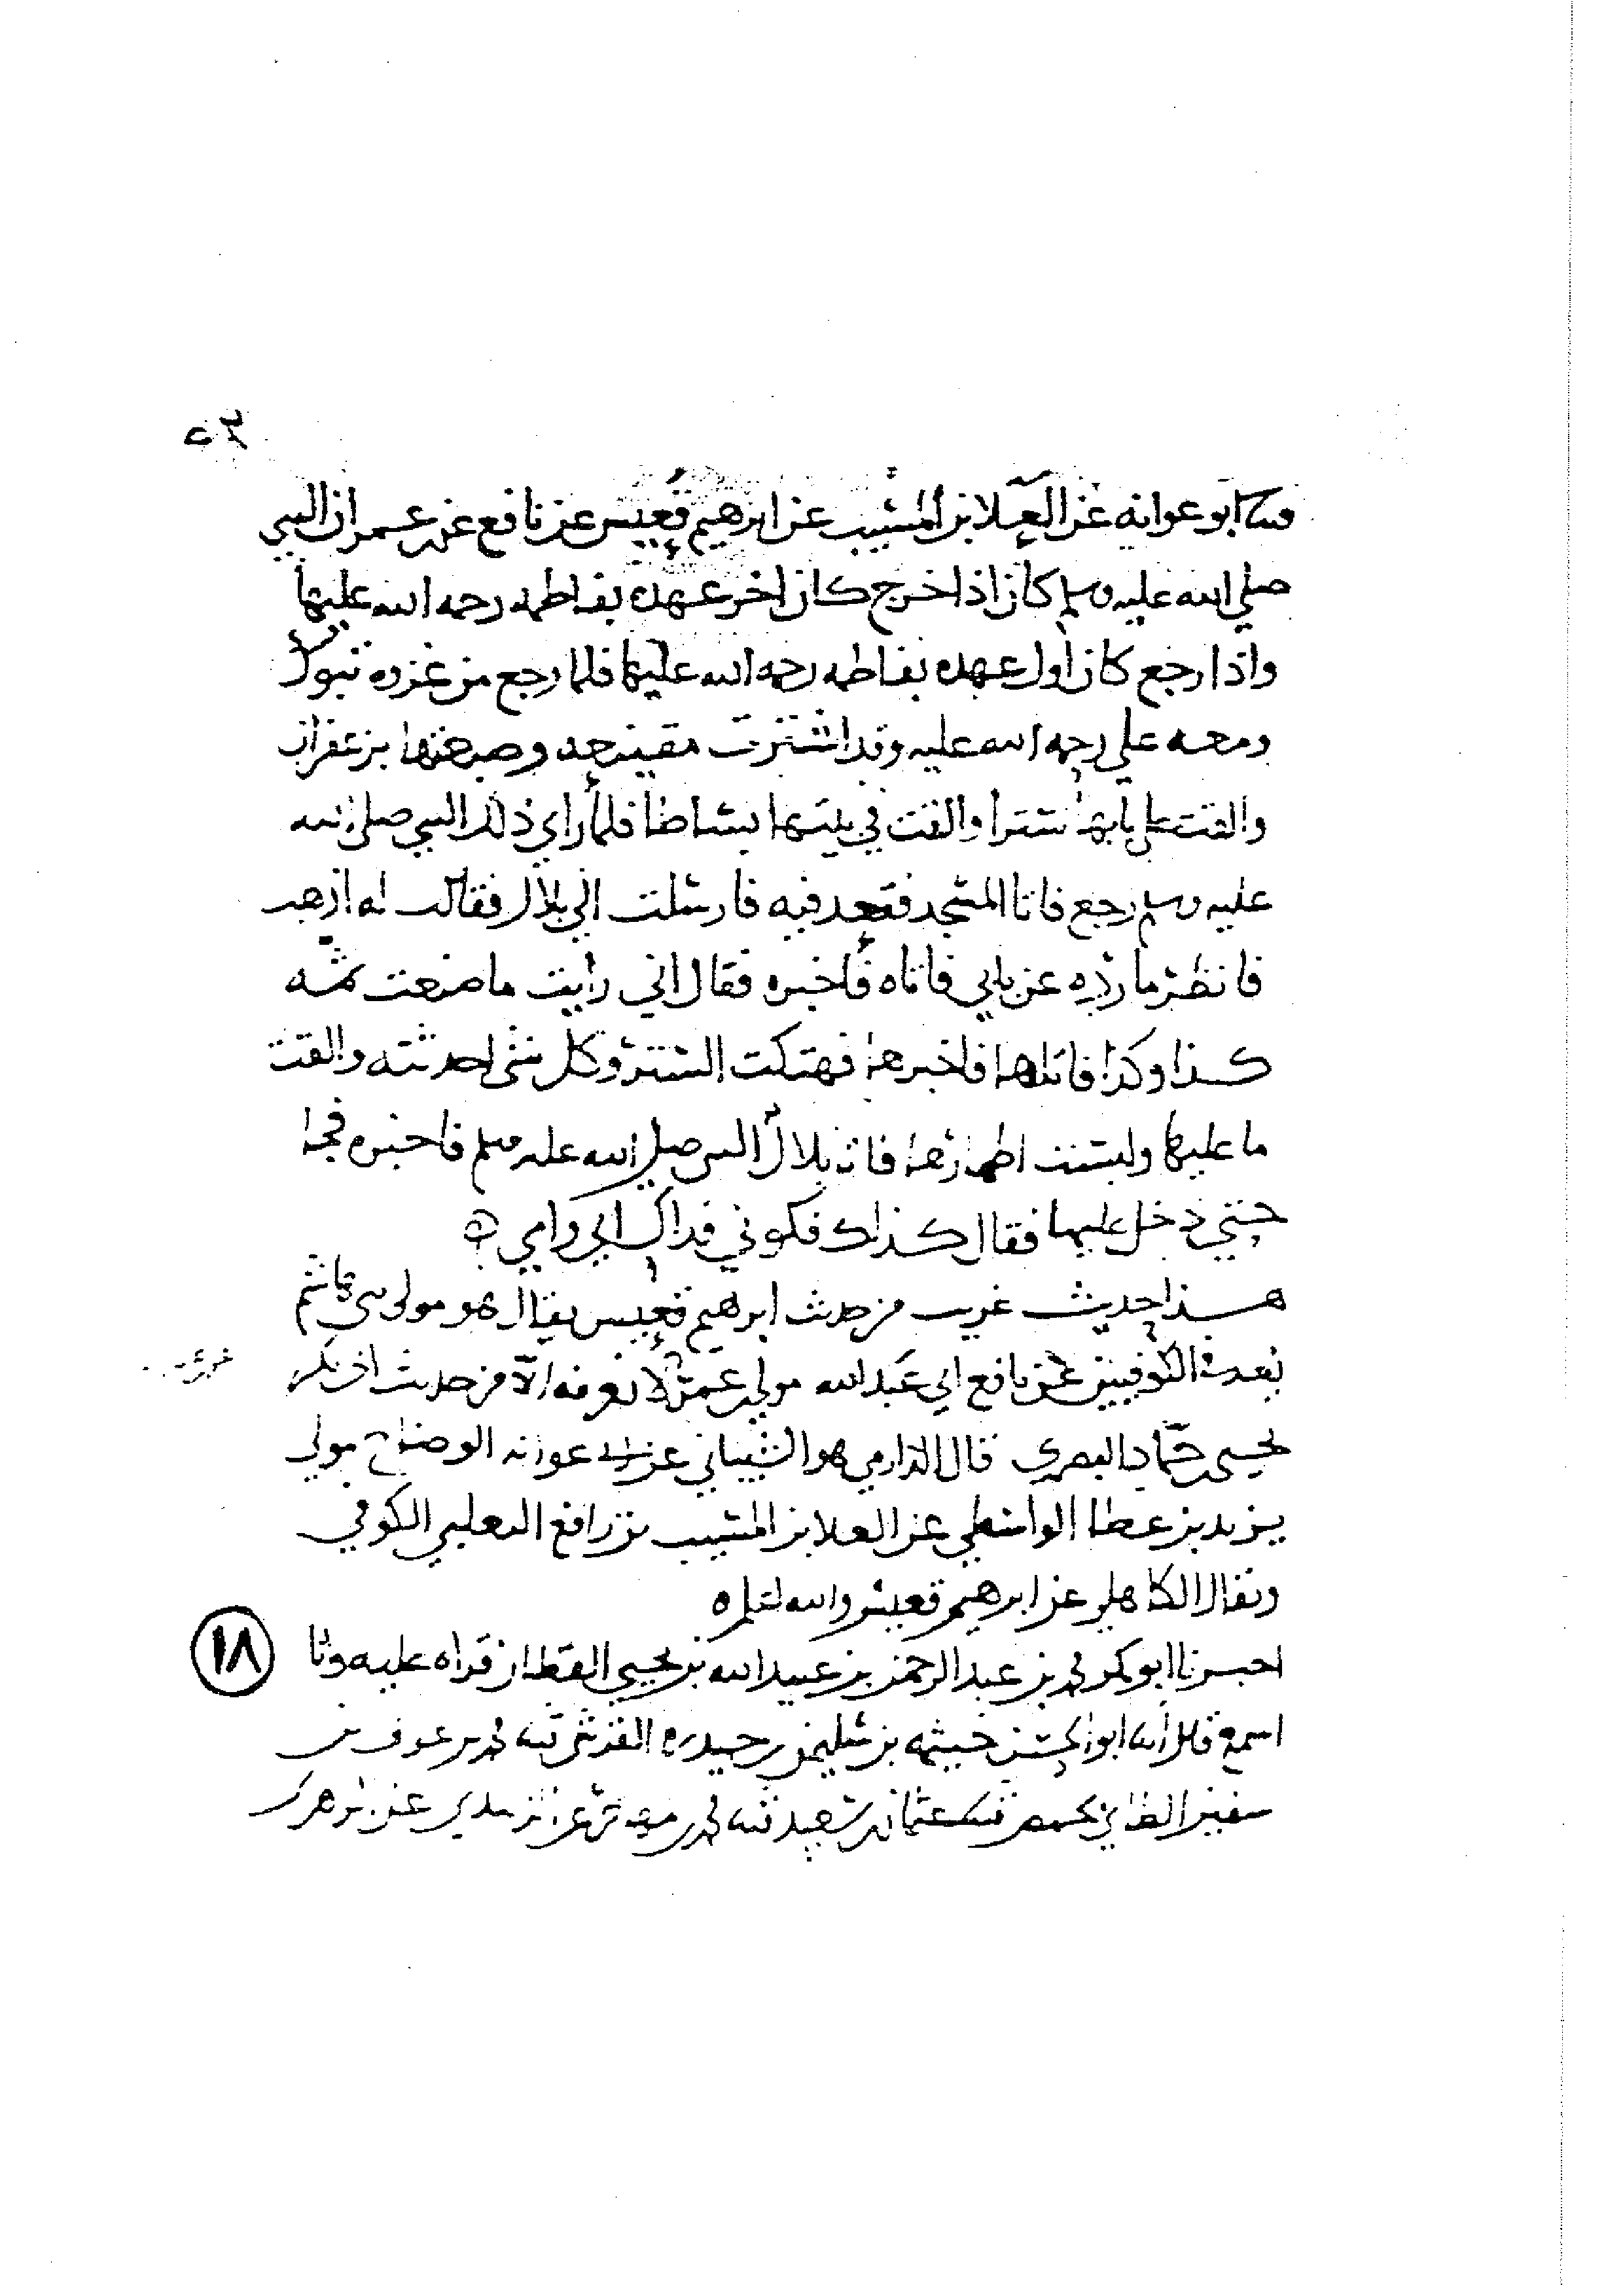 ٢٣
ثنا ابو عوانه عن العلا بن المسيب عن ابرهيم قعيس عن نافع عن بن عمر ان النبي
صلي الله عليه وسلم كان اذا خرج كان اخر عهده بفاطمه رحمه الله عليها
واذا رجع كان اول عهده بفاطمه رحمه الله عليها فلما رجع من غزوه تبوك
ومعه علي رحمه الله عليه وقد اشترت مقينعه وصبغتها بزعفران
والقت علي بابها سترا والقت في بيتها بساطا فلما راي ذلك النبي صلي الله
عليه وسلم رجع فاتا المسجد فقعد فيه فارسلت الي بلال فقالت له اذهب
فانظر ما رده عن بابي فاتاه فاخبره فقال اني رايت ما صنعت ثمه
كذا وكذا فاتاها فاخبرها فهتكت الستر وكل شي احدثته والقت
ما عليها ولبست اطمارها فاتا بلال النبي صلي الله عليه وسلم فاخبره فجا
حتي دخل عليها فقال كذلك فكوني فداك ابي وامي ه
هذا حديث غريب من حديث ابرهيم قعيس يقال هو مولي بني هاشم
يعد في الكوفيين عن نافع ابي عبد الله مولي بن عمر لا نعرفه الا من حديث ابي بكر
يحيي بن حماد البصري قال الدارمي هو الشيباني عن ابي عوانه الوضاح مولي
يزيد بن عطا الواسطي عن العلا بن المسيب بن رافع التغلبي الكوفي
ويقال الكاهلي عن ابرهيم قعيس والله اعلم ه
١٨
اخبرنا ابو بكر محمد بن عبد الرحمن بن عبيد الله بن يحيي القطان قراه عليه وانا
اسمع قال انا ابو الحسن خيثمه بن سليمن بن حيدره القرشي ثنا محمد بن عوف بن
سفين الطائي بحمص ثنا عثمان بن سعيد ثنا محمد بن مهاجر عن الزبيدي عن الزهري